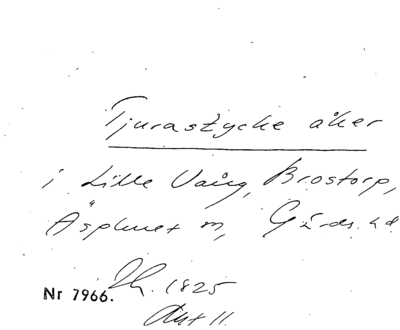 Tjurastycke åker
i Lille Vång, Brostorp,
Äsphult sn, Gärds hd
Nr 7966. 1825
Akt 11.